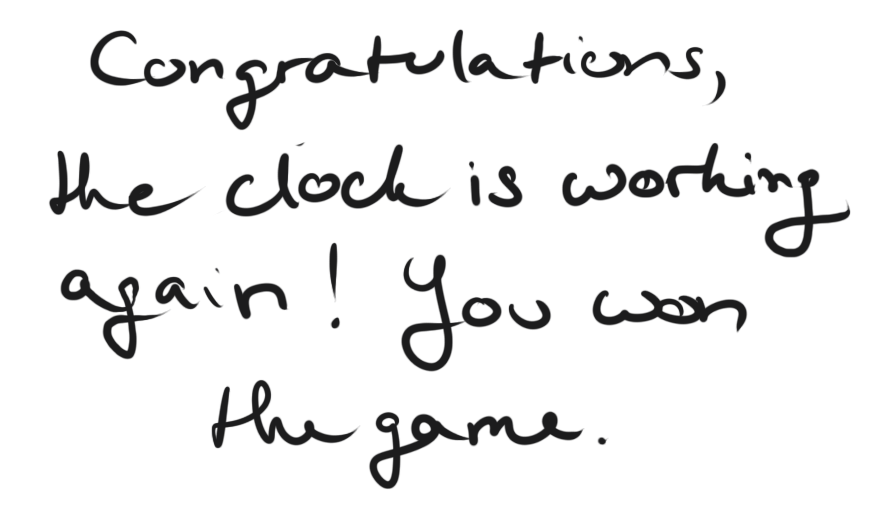 Congratulations,
the clock is working
again! You won
the game.